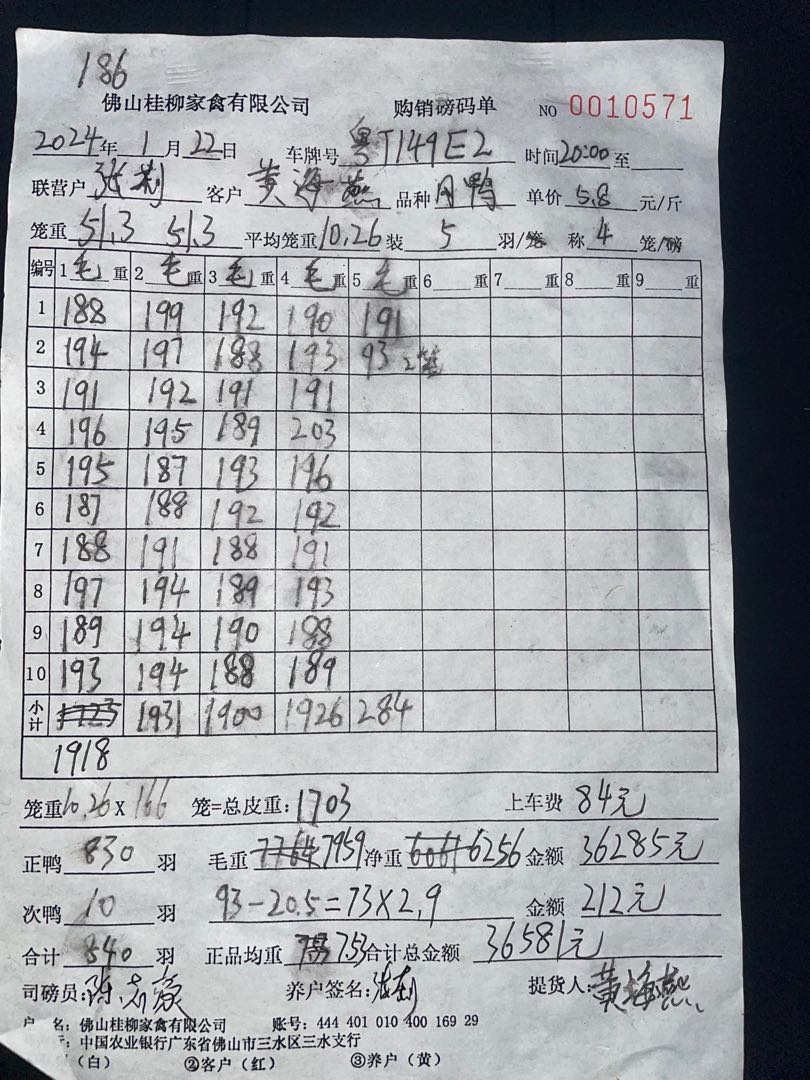 186
佛山桂柳家禽有限公司 购销磅码单 NO 0010571
2024年 1月 22日 车牌号 粤T149E2 时间20:00至
联营户 张莉 客户 黄海燕 品种 月鸭 单价 5.8 元/斤
笼重 51.3 51.3 平均笼重10.26 装 5 羽/笼 称 4 笼/磅
编号 1 毛 重 2 毛 重 3 毛 重 4 毛 重 5 毛 6 重 7 重 8 重 9 重
1 188 199 192 190 191
2 194 197 188 193 93 2笼
3 191 192 191 191
4 196 195 189 203
5 195 187 193 196
6 187 188 192 192
7 188 191 188 191
8 197 194 189 193
9 189 194 190 188
10 193 194 188 189
小计 1931 1900 1926 284
1918
笼重10.26 X 166 笼=总皮重: 1703 上车费 84元
正鸭 830 羽 毛重 7764 7959 净重 6061 6256 金额 36285元
次鸭 10 羽 93-20.5=73×2.9 金额 212元
合计 840 羽 正品均重 753 合计总金额 36581元
司磅员: 养户签名: 张莉 提货人: 黄海燕
名: 佛山桂柳家禽有限公司 账号: 444 401 010 400 169 29
: 中国农业银行广东省佛山市三水区三水支行
(白) ②客户(红) ③养户(黄)